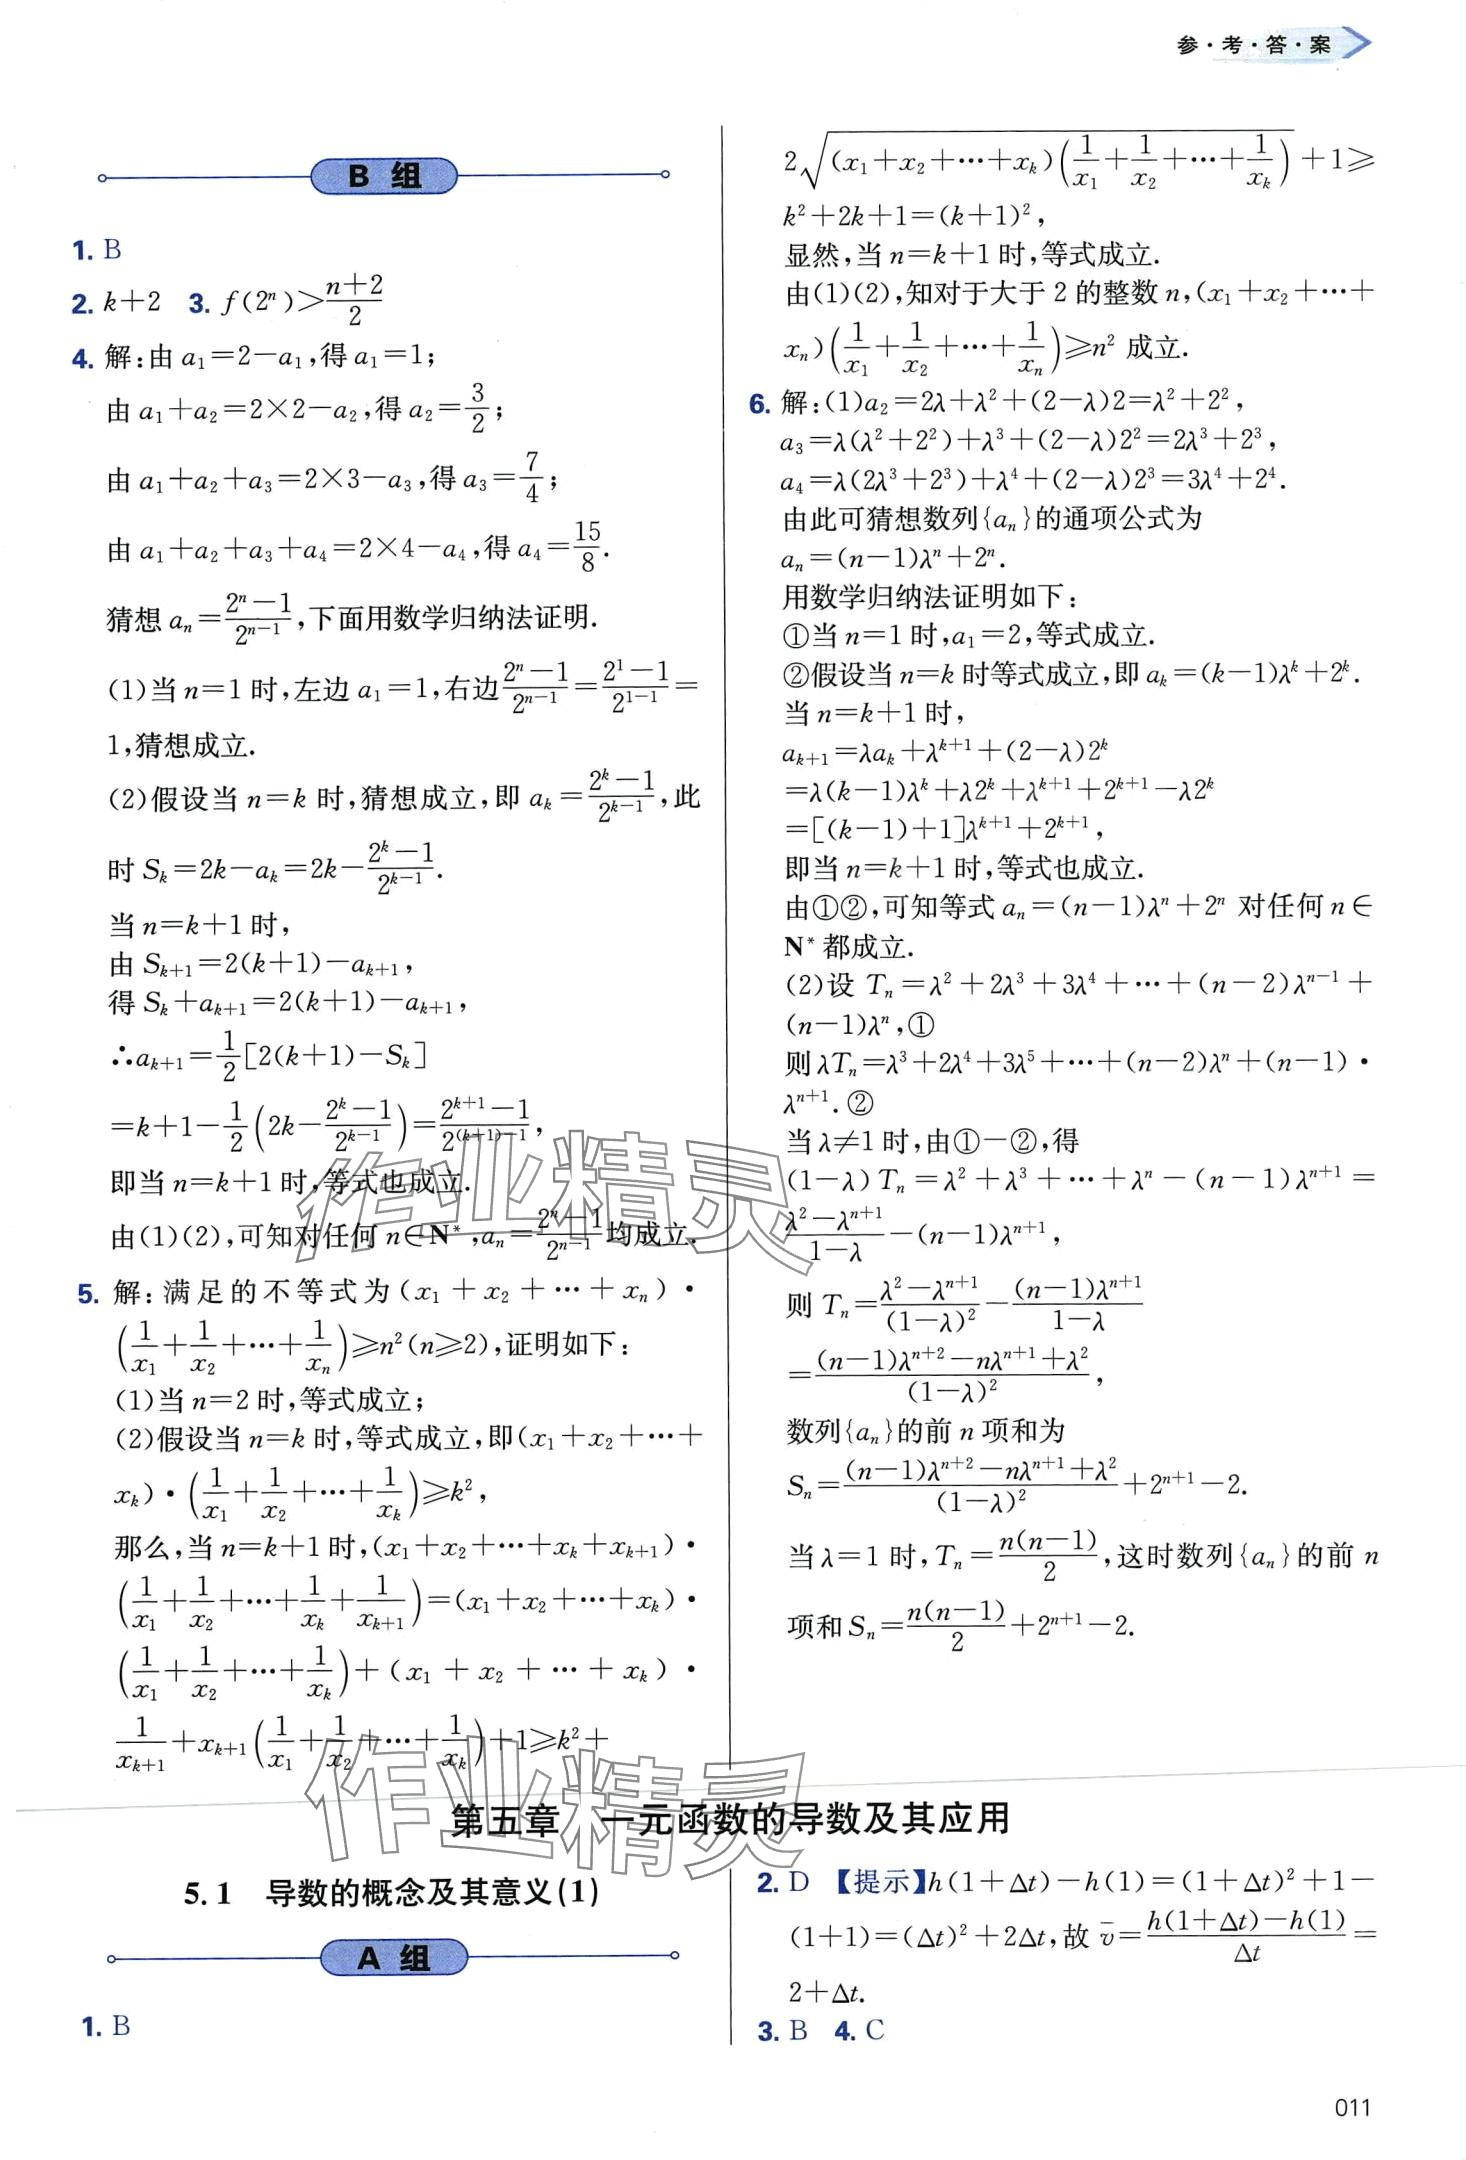 参·考·答·案
B 组
1. B
2. k+2 3. f(2ⁿ)>(n+2)/2
4. 解:由 a₁=2-a₁,得 a₁=1;
由 a₁+a₂=2×2-a₂,得 a₂=3/2;
由 a₁+a₂+a₃=2×3-a₃,得 a₃=7/4;
由 a₁+a₂+a₃+a₄=2×4-a₄,得 a₄=15/8.
猜想 aₙ=(2ⁿ-1)/2ⁿ⁻¹,下面用数学归纳法证明.
(1)当 n=1 时,左边 a₁=1,右边(2ⁿ-1)/2ⁿ⁻¹=(2¹-1)/2¹⁻¹=
1,猜想成立.
(2)假设当 n=k 时,猜想成立,即 aₖ=(2ᵏ-1)/2ᵏ⁻¹,此
时 Sₖ=2k-aₖ=2k-(2ᵏ-1)/2ᵏ⁻¹.
当 n=k+1 时,
由 Sₖ₊₁=2(k+1)-aₖ₊₁,
得 Sₖ+aₖ₊₁=2(k+1)-aₖ₊₁,
∴aₖ₊₁=1/2[2(k+1)-Sₖ]
=k+1-1/2(2k-(2ᵏ-1)/2ᵏ⁻¹)=(2ᵏ⁺¹-1)/2⁽ᵏ⁺¹⁾⁻¹,
即当 n=k+1 时,等式也成立.
由(1)(2),可知对任何 n∈N*,aₙ=(2ⁿ-1)/2ⁿ⁻¹均成立.
5. 解:满足的不等式为(x₁+x₂+…+xₙ)·
(1/x₁+1/x₂+…+1/xₙ)≥n²(n≥2),证明如下:
(1)当 n=2 时,等式成立;
(2)假设当 n=k 时,等式成立,即(x₁+x₂+…+
xₖ)·(1/x₁+1/x₂+…+1/xₖ)≥k²,
那么,当 n=k+1 时,(x₁+x₂+…+xₖ+xₖ₊₁)·
(1/x₁+1/x₂+…+1/xₖ+1/xₖ₊₁)=(x₁+x₂+…+xₖ)·
(1/x₁+1/x₂+…+1/xₖ)+(x₁+x₂+…+xₖ)·
1/xₖ₊₁+xₖ₊₁(1/x₁+1/x₂+…+1/xₖ)+1≥k²+
2√((x₁+x₂+…+xₖ)(1/x₁+1/x₂+…+1/xₖ))+1≥
k²+2k+1=(k+1)²,
显然,当 n=k+1 时,等式成立.
由(1)(2),知对于大于 2 的整数 n,(x₁+x₂+…+
xₙ)(1/x₁+1/x₂+…+1/xₙ)≥n² 成立.
6. 解:(1)a₂=2λ+λ²+(2-λ)2=λ²+2²,
a₃=λ(λ²+2²)+λ³+(2-λ)2²=2λ³+2³,
a₄=λ(2λ³+2³)+λ⁴+(2-λ)2³=3λ⁴+2⁴.
由此可猜想数列{aₙ}的通项公式为
aₙ=(n-1)λⁿ+2ⁿ.
用数学归纳法证明如下:
①当 n=1 时,a₁=2,等式成立.
②假设当 n=k 时等式成立,即 aₖ=(k-1)λᵏ+2ᵏ.
当 n=k+1 时,
aₖ₊₁=λaₖ+λᵏ⁺¹+(2-λ)2ᵏ
=λ(k-1)λᵏ+λ2ᵏ+λᵏ⁺¹+2ᵏ⁺¹-λ2ᵏ
=[(k-1)+1]λᵏ⁺¹+2ᵏ⁺¹,
即当 n=k+1 时,等式也成立.
由①②,可知等式 aₙ=(n-1)λⁿ+2ⁿ 对任何 n∈
N* 都成立.
(2)设 Tₙ=λ²+2λ³+3λ⁴+…+(n-2)λⁿ⁻¹+
(n-1)λⁿ,①
则 λTₙ=λ³+2λ⁴+3λ⁵+…+(n-2)λⁿ+(n-1)·
λⁿ⁺¹.②
当 λ≠1 时,由①-②,得
(1-λ)Tₙ=λ²+λ³+…+λⁿ-(n-1)λⁿ⁺¹=
(λ²-λⁿ⁺¹)/(1-λ)-(n-1)λⁿ⁺¹,
则 Tₙ=(λ²-λⁿ⁺¹)/(1-λ)²-(n-1)λⁿ⁺¹/(1-λ)
=((n-1)λⁿ⁺²-nλⁿ⁺¹+λ²)/(1-λ)²,
数列{aₙ}的前 n 项和为
Sₙ=((n-1)λⁿ⁺²-nλⁿ⁺¹+λ²)/(1-λ)²+2ⁿ⁺¹-2.
当 λ=1 时,Tₙ=n(n-1)/2,这时数列{aₙ}的前 n
项和 Sₙ=n(n-1)/2+2ⁿ⁺¹-2.
作业精灵
作业精灵
第五章 一元函数的导数及其应用
5.1 导数的概念及其意义(1)
A 组
1. B
2. D 【提示】h(1+Δt)-h(1)=(1+Δt)²+1-
(1+1)=(Δt)²+2Δt,故 v̄=(h(1+Δt)-h(1))/Δt=
2+Δt.
3. B 4. C
011